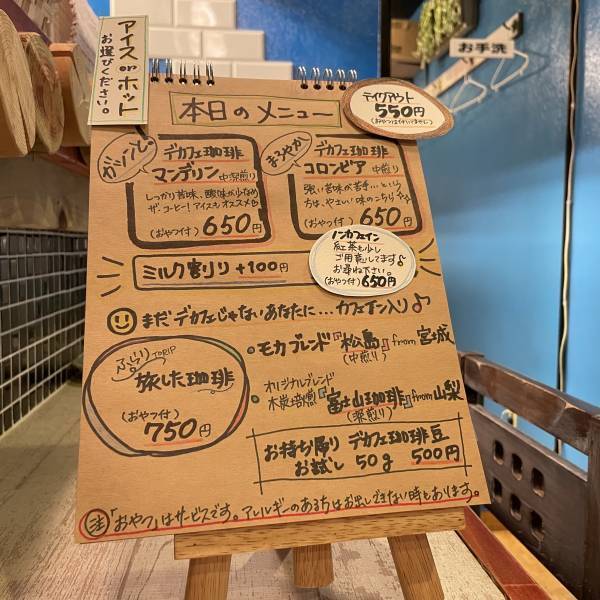 アイス or ホット
お選びください。
お手洗
本日のメニュー
テイクアウト
550円
(おやつは付いてません)
ガツンと。
デカフェ珈琲
マンデリン 中深煎り
しっかり苦味、酸味が少なめ
ザ・コーヒー!アイスもオススメ
(おやつ付) 650円
まろやか
デカフェ珈琲
コロンビア 中煎り
強い苦味が苦手…という
方は、やさしい味のこちら
(おやつ付) 650円
ノンカフェイン
紅茶も少し
ご用意してます♪
お尋ね下さい。
(おやつ付) 650円
ミルク割り +100円
まだデカフェじゃないあなたに…カフェイン入り♪
ふらり TRIP
旅した珈琲
(おやつ付)
750円
モカブレンド『松島』from 宮城
(中煎り)
オリジナルブレンド
木炭焙煎『富士山珈琲』from 山梨
(深煎り)
お持ち帰り デカフェ珈琲豆
お試し 50g 500円
注「おやつ」はサービスです。アレルギーのある方はお出しできない時もあります。